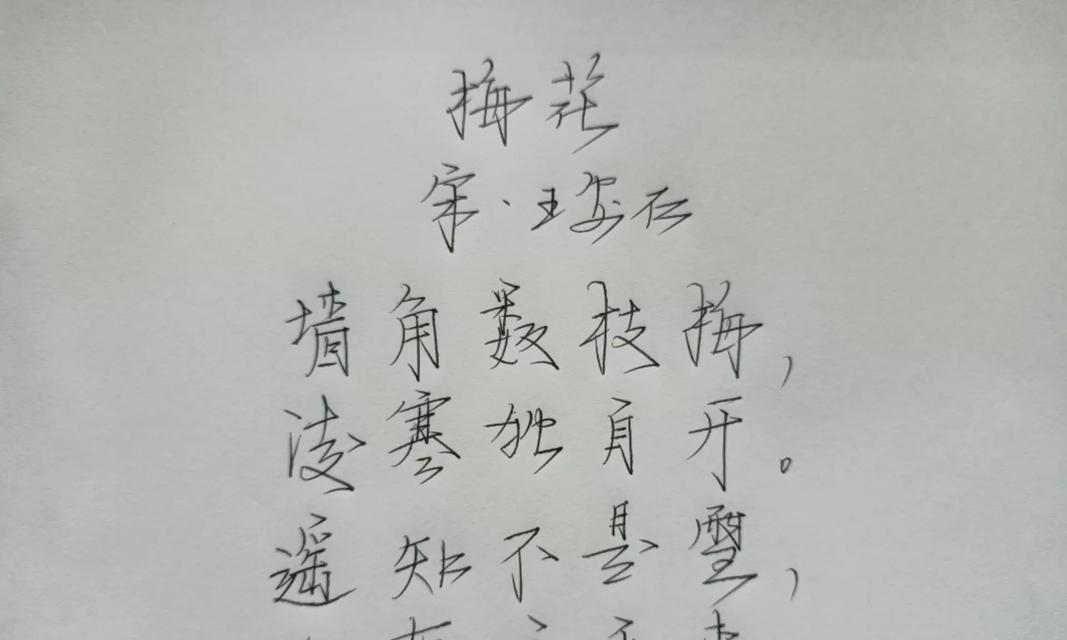 梅花
宋·王安石
墙角数枝梅，
凌寒独自开。
遥知不是雪，